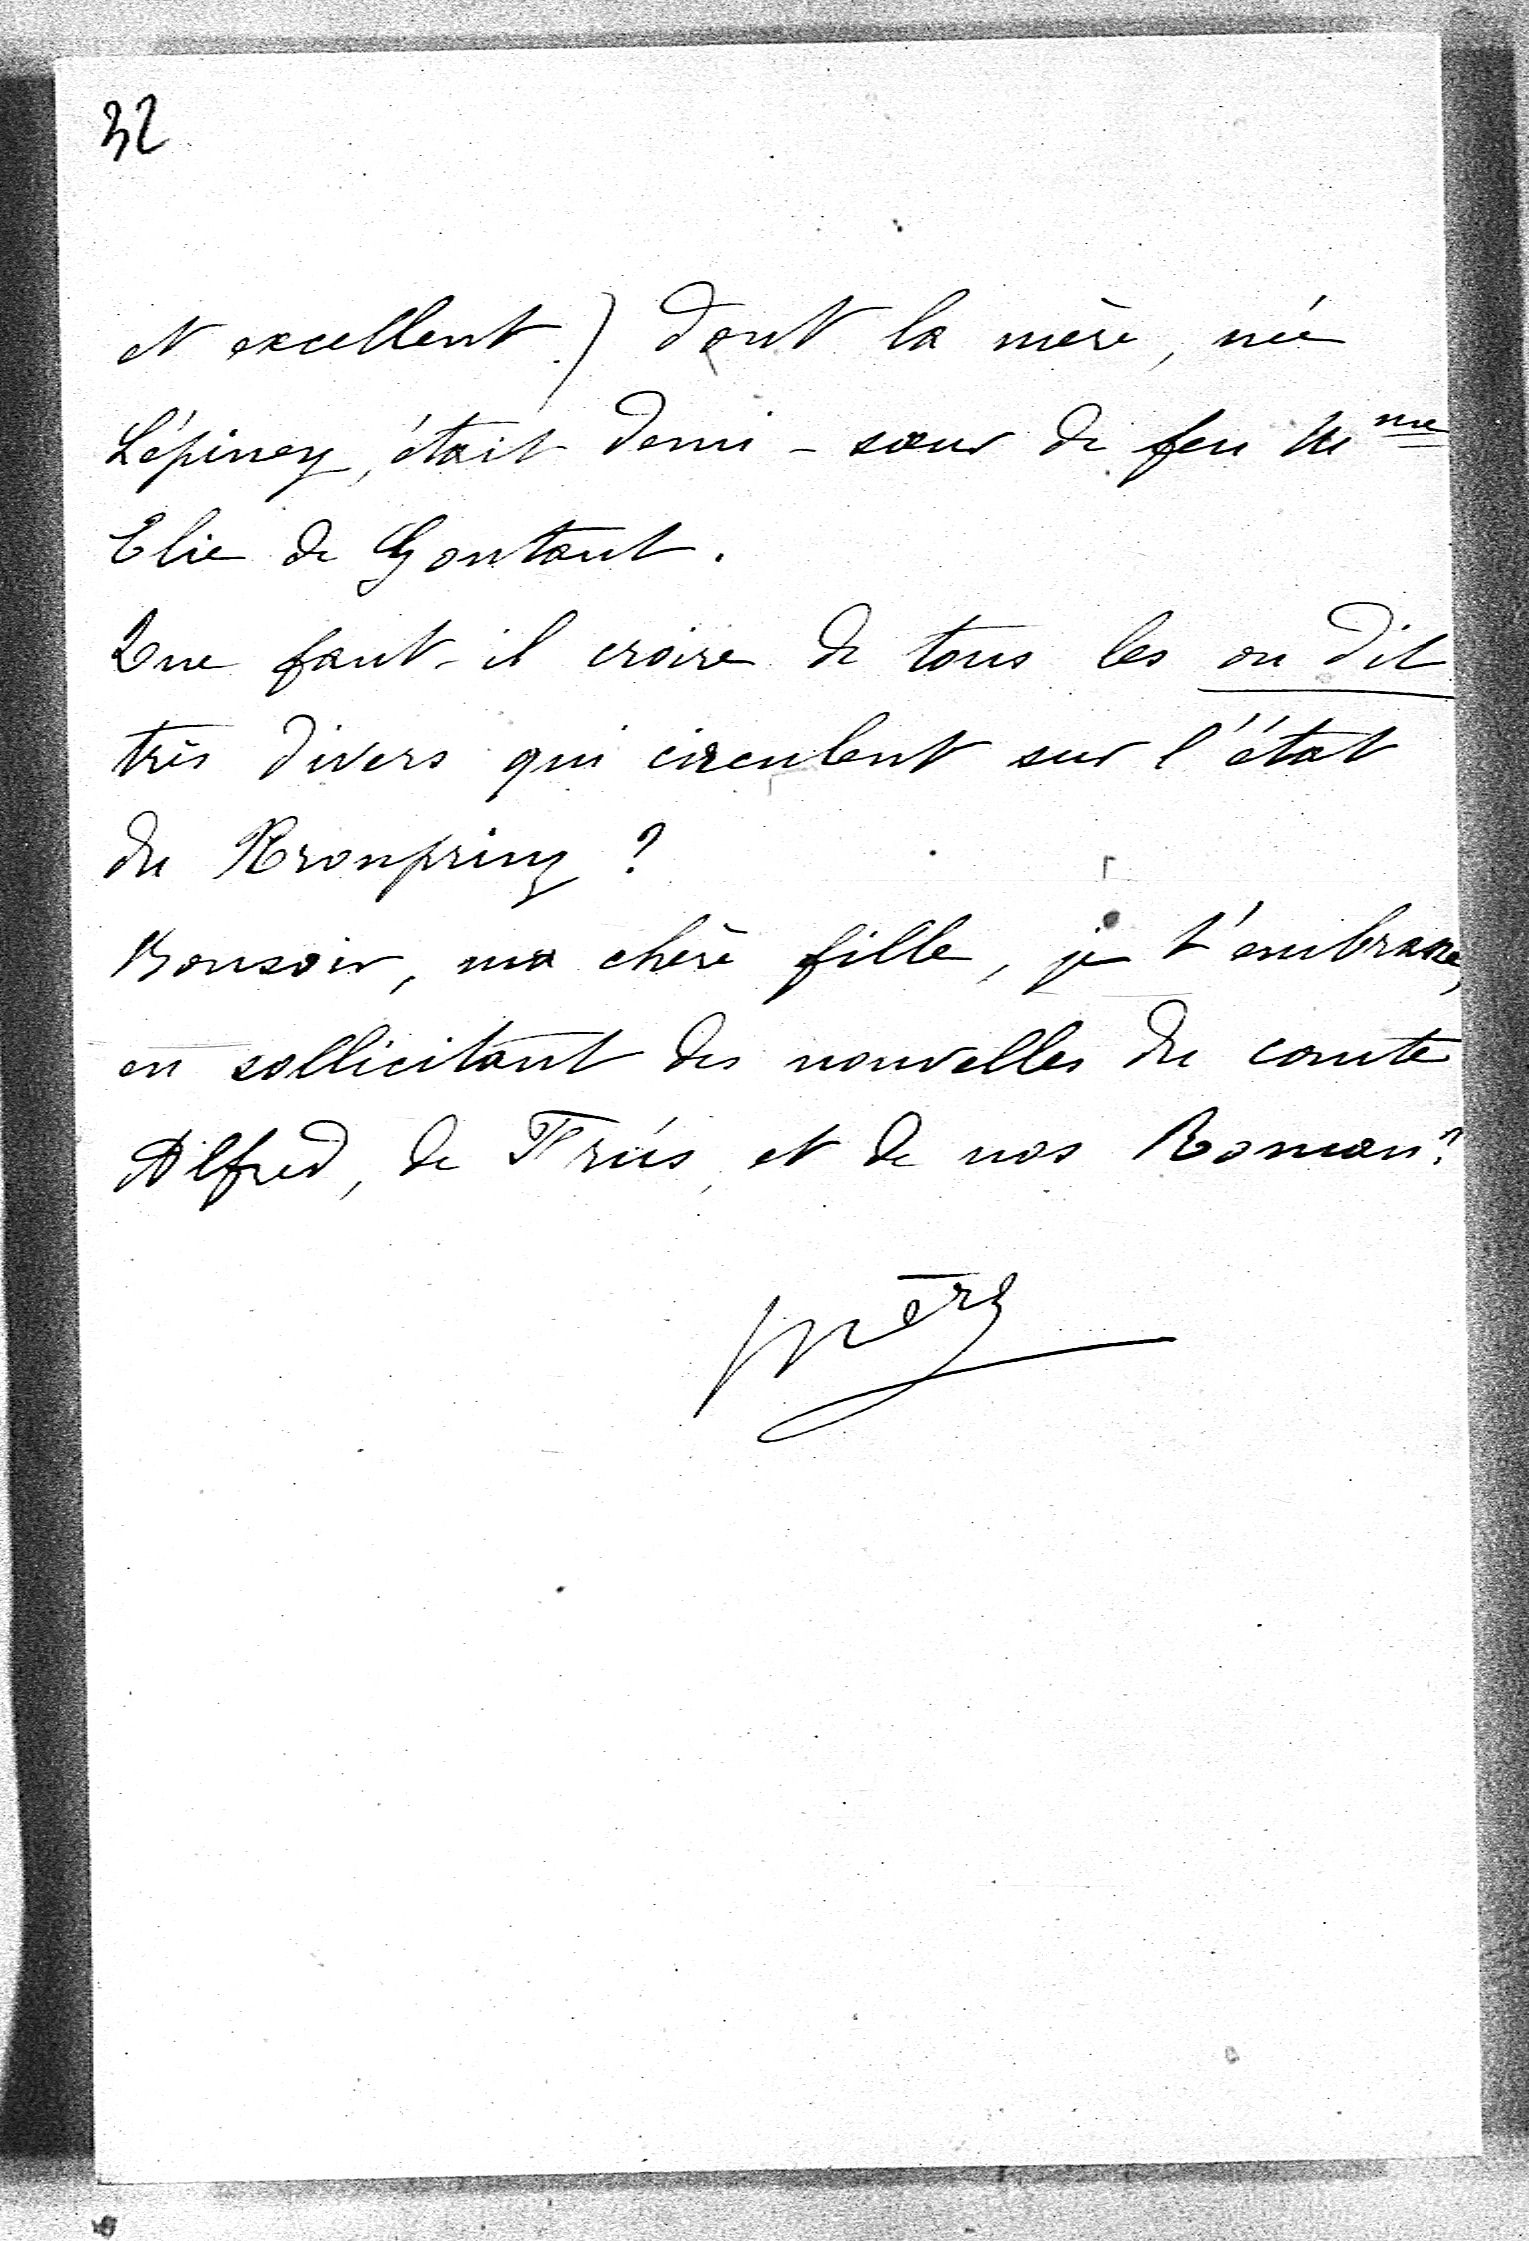 32
et excellent) dont la mère, née
Lépinay, était demi-sœur de feu Mme
Elie de Gontaut.
Que faut-il croire de tous les on dit
très divers qui circulent sur l'état
du Kronprinz ?
Bonsoir, ma chère fille, je t'embrasse,
en sollicitant des nouvelles du comte
Alfred, de et de nos Romans?
Mère